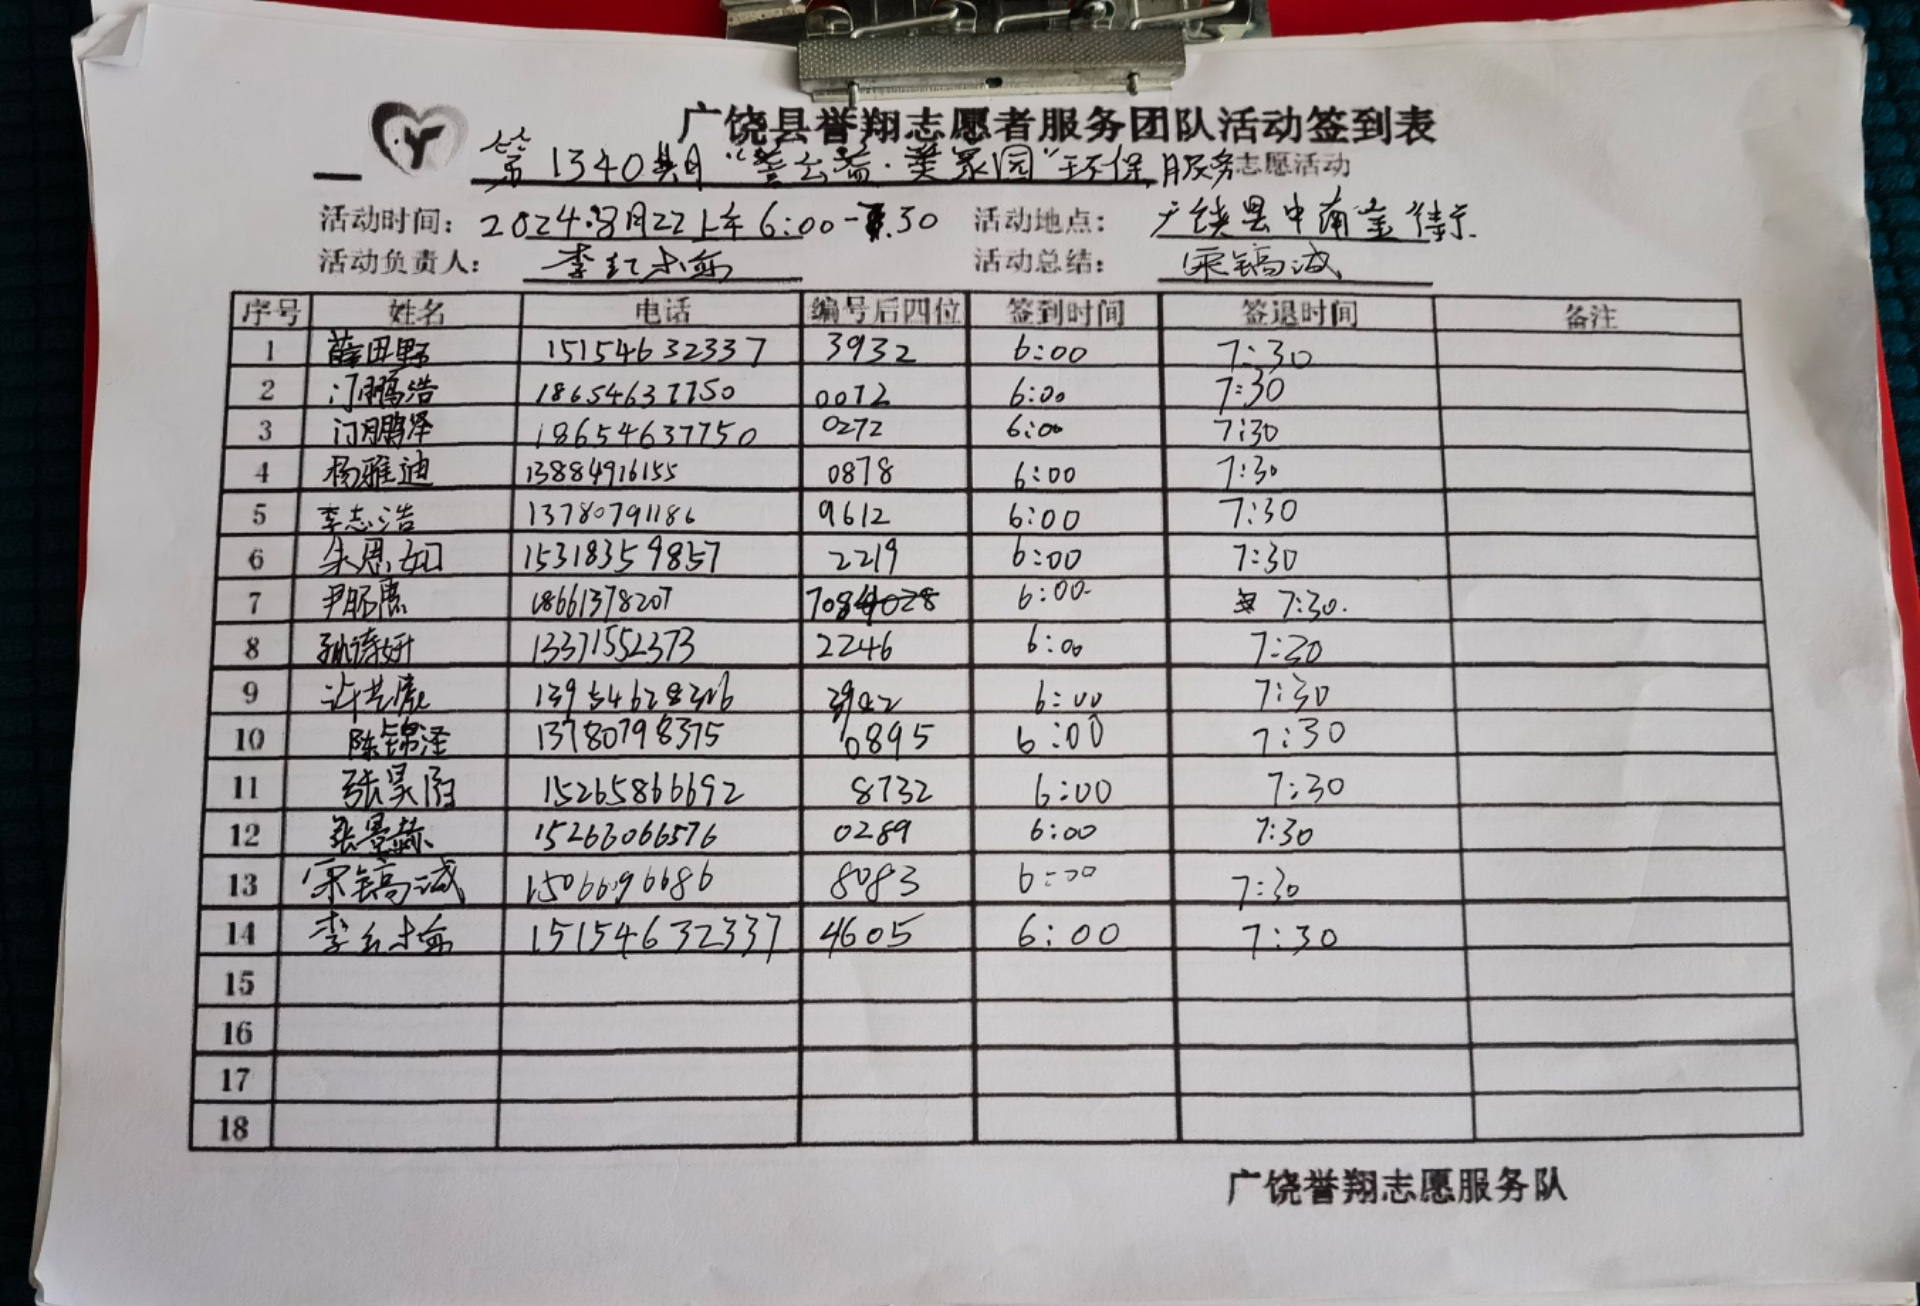 广饶县誉翔志愿者服务团队活动签到表
第1340期“誉公益·美家园”环保服务志愿活动
活动时间：2024.8月22上午6:00-7.30 活动地点：广饶县中南金街
活动负责人：李红梅 活动总结：宋镐诚
序号 姓名 电话 编号后四位 签到时间 签退时间 备注
1 薛田野 15154632337 3932 6:00 7:30
2 门鹏浩 18654637750 0072 6:00 7:30
3 门鹏泽 18654637750 0272 6:00 7:30
4 杨雅迪 13884916155 0878 6:00 7:30
5 李志浩 13780791186 9612 6:00 7:30
6 朱恩如 15318359857 2219 6:00 7:30
7 18661378207 6:00 7:30.
8 孙诗妍 13371552373 2246 6:00 7:30
9 6:00 7:30
10 陈锦泽 13780798375 0895 6:00 7:30
11 张昊雨 15265866692 8732 6:00 7:30
12 张景赫 15263066576 0289 6:00 7:30
13 宋镐诚 1506696686 8083 6:00 7:30
14 李红梅 15154632337 4605 6:00 7:30
15
16
17
18
广饶誉翔志愿服务队